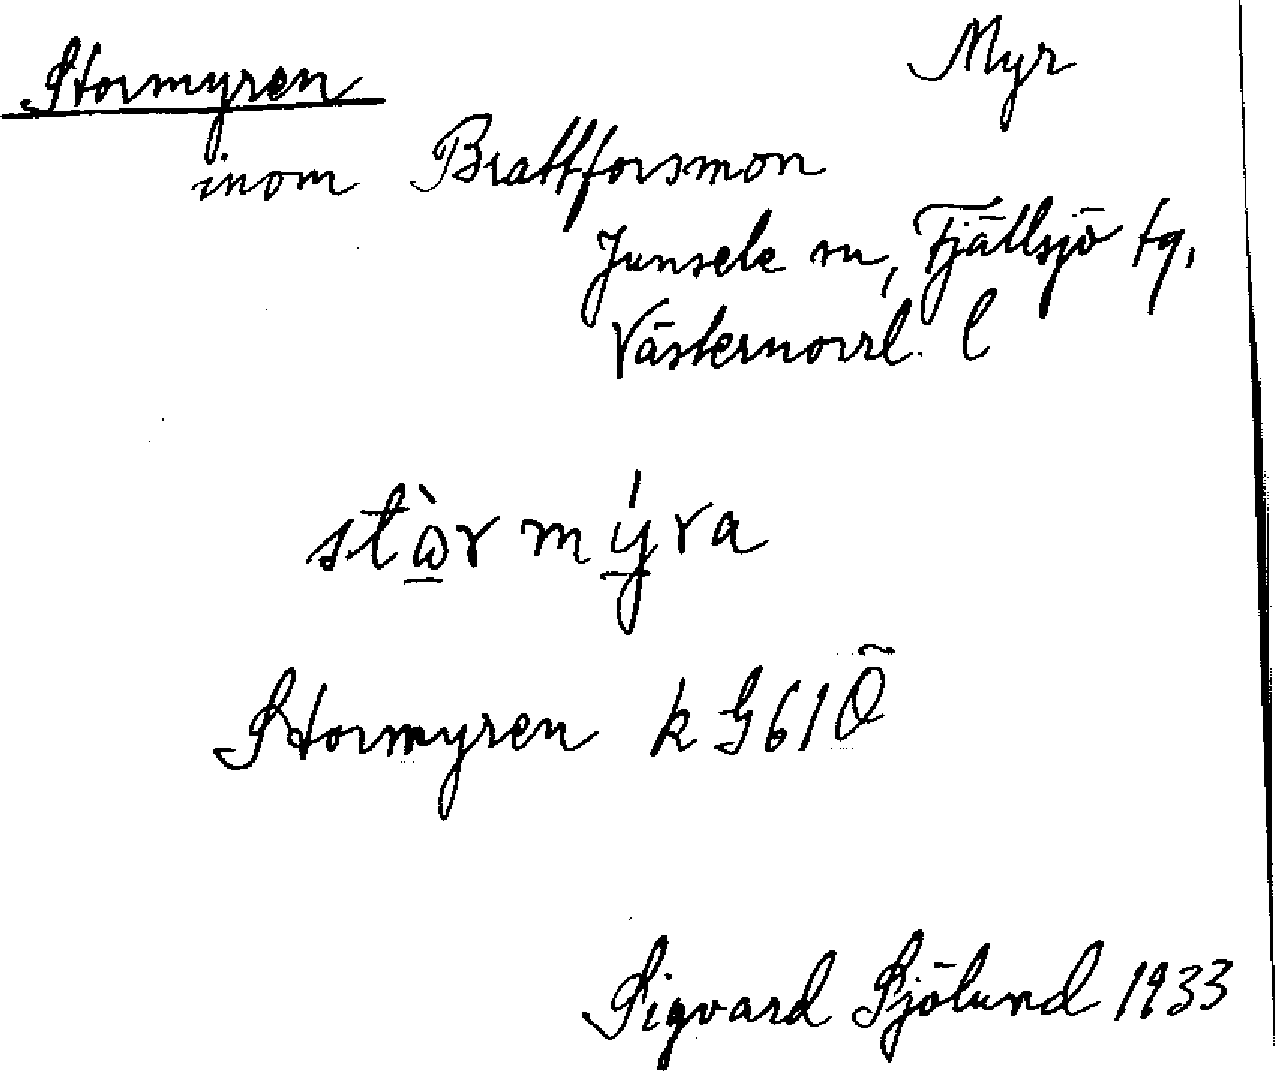 Stormyren Myr
inom Brattforsmon
Junsele sn, Fjällsjö tg,
Västernorrl. l
stὼ̲r mý̲ra
Stormyren k G61Ö
Sigvard Sjölund 1933